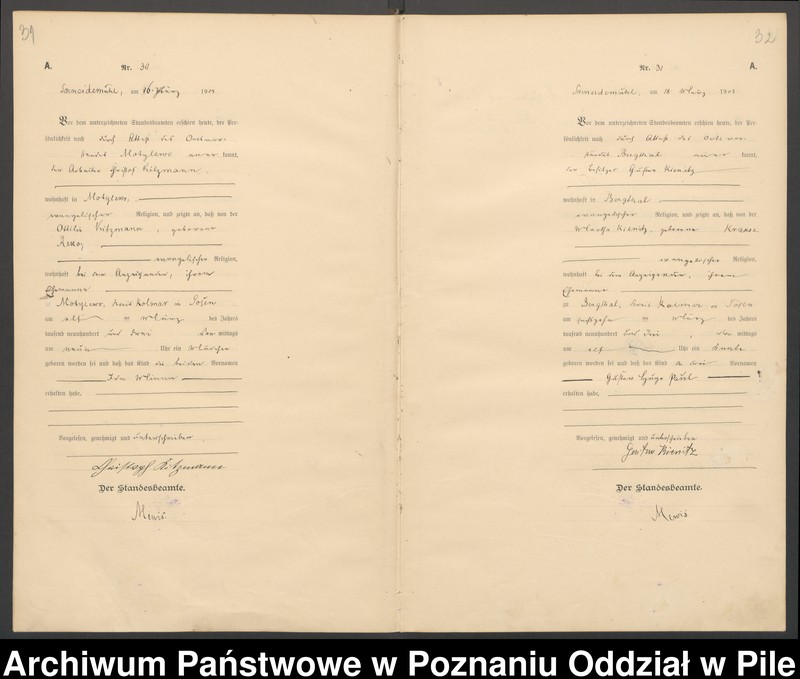 31
A.
Nr. 30
Schneidemühl, am 16. März 1903
Vor dem unterzeichneten Standesbeamten erschien heute, der Per-
sönlichkeit nach durch Attest des Ortsvor-
standes Motylewo anerkannt,
der Arbeiter Kitzmann
wohnhaft in Motylewo,
evangelischer Religion, und zeigte an, daß von der
Ottilie Kitzmann, geborenen
evangelischer Religion,
wohnhaft bei dem Anzeigenden, ihrem
Ehemanne
zu Motylewo, Kreis Kolmar in Posen
am elf ten März des Jahres
tausend neunhundert und drei mittags
um neun Uhr ein Mädchen
geboren worden sei und daß das Kind die beiden Vornamen
Ida Minna
erhalten habe.
Vorgelesen, genehmigt und unterschrieben
Christoph Kitzmann
Der Standesbeamte.
Mewis
32
Nr. 31
A.
Schneidemühl, am 18 März 1903
Vor dem unterzeichneten Standesbeamten erschien heute, der Per-
sönlichkeit nach durch Attest des Ortsvor-
standes anerkannt,
der Besitzer Gustav Kienitz
wohnhaft in
evangelischer Religion, und zeigte an, daß von der
Martha Kienitz, geborenen Krause
evangelischer Religion,
wohnhaft bei dem Anzeigenden, ihrem
Ehemanne
zu Kreis Kolmar in Posen
am März des Jahres
tausend neunhundert und drei, mittags
um elf Uhr ein Knabe
geboren worden sei und daß das Kind drei Vornamen
Gustav Hugo Paul
erhalten habe.
Vorgelesen, genehmigt und unterschrieben
Gustav Kienitz
Der Standesbeamte.
Mewis
Archiwum Państwowe w Poznaniu Oddział w Pile